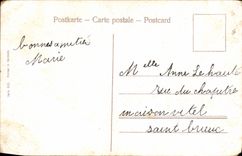 Postkarte – Carte postale – Postcard
bonnes amitiés
Marie
Melle Anne Le haut
rue du chapitre
maison vitel
saint brieuc